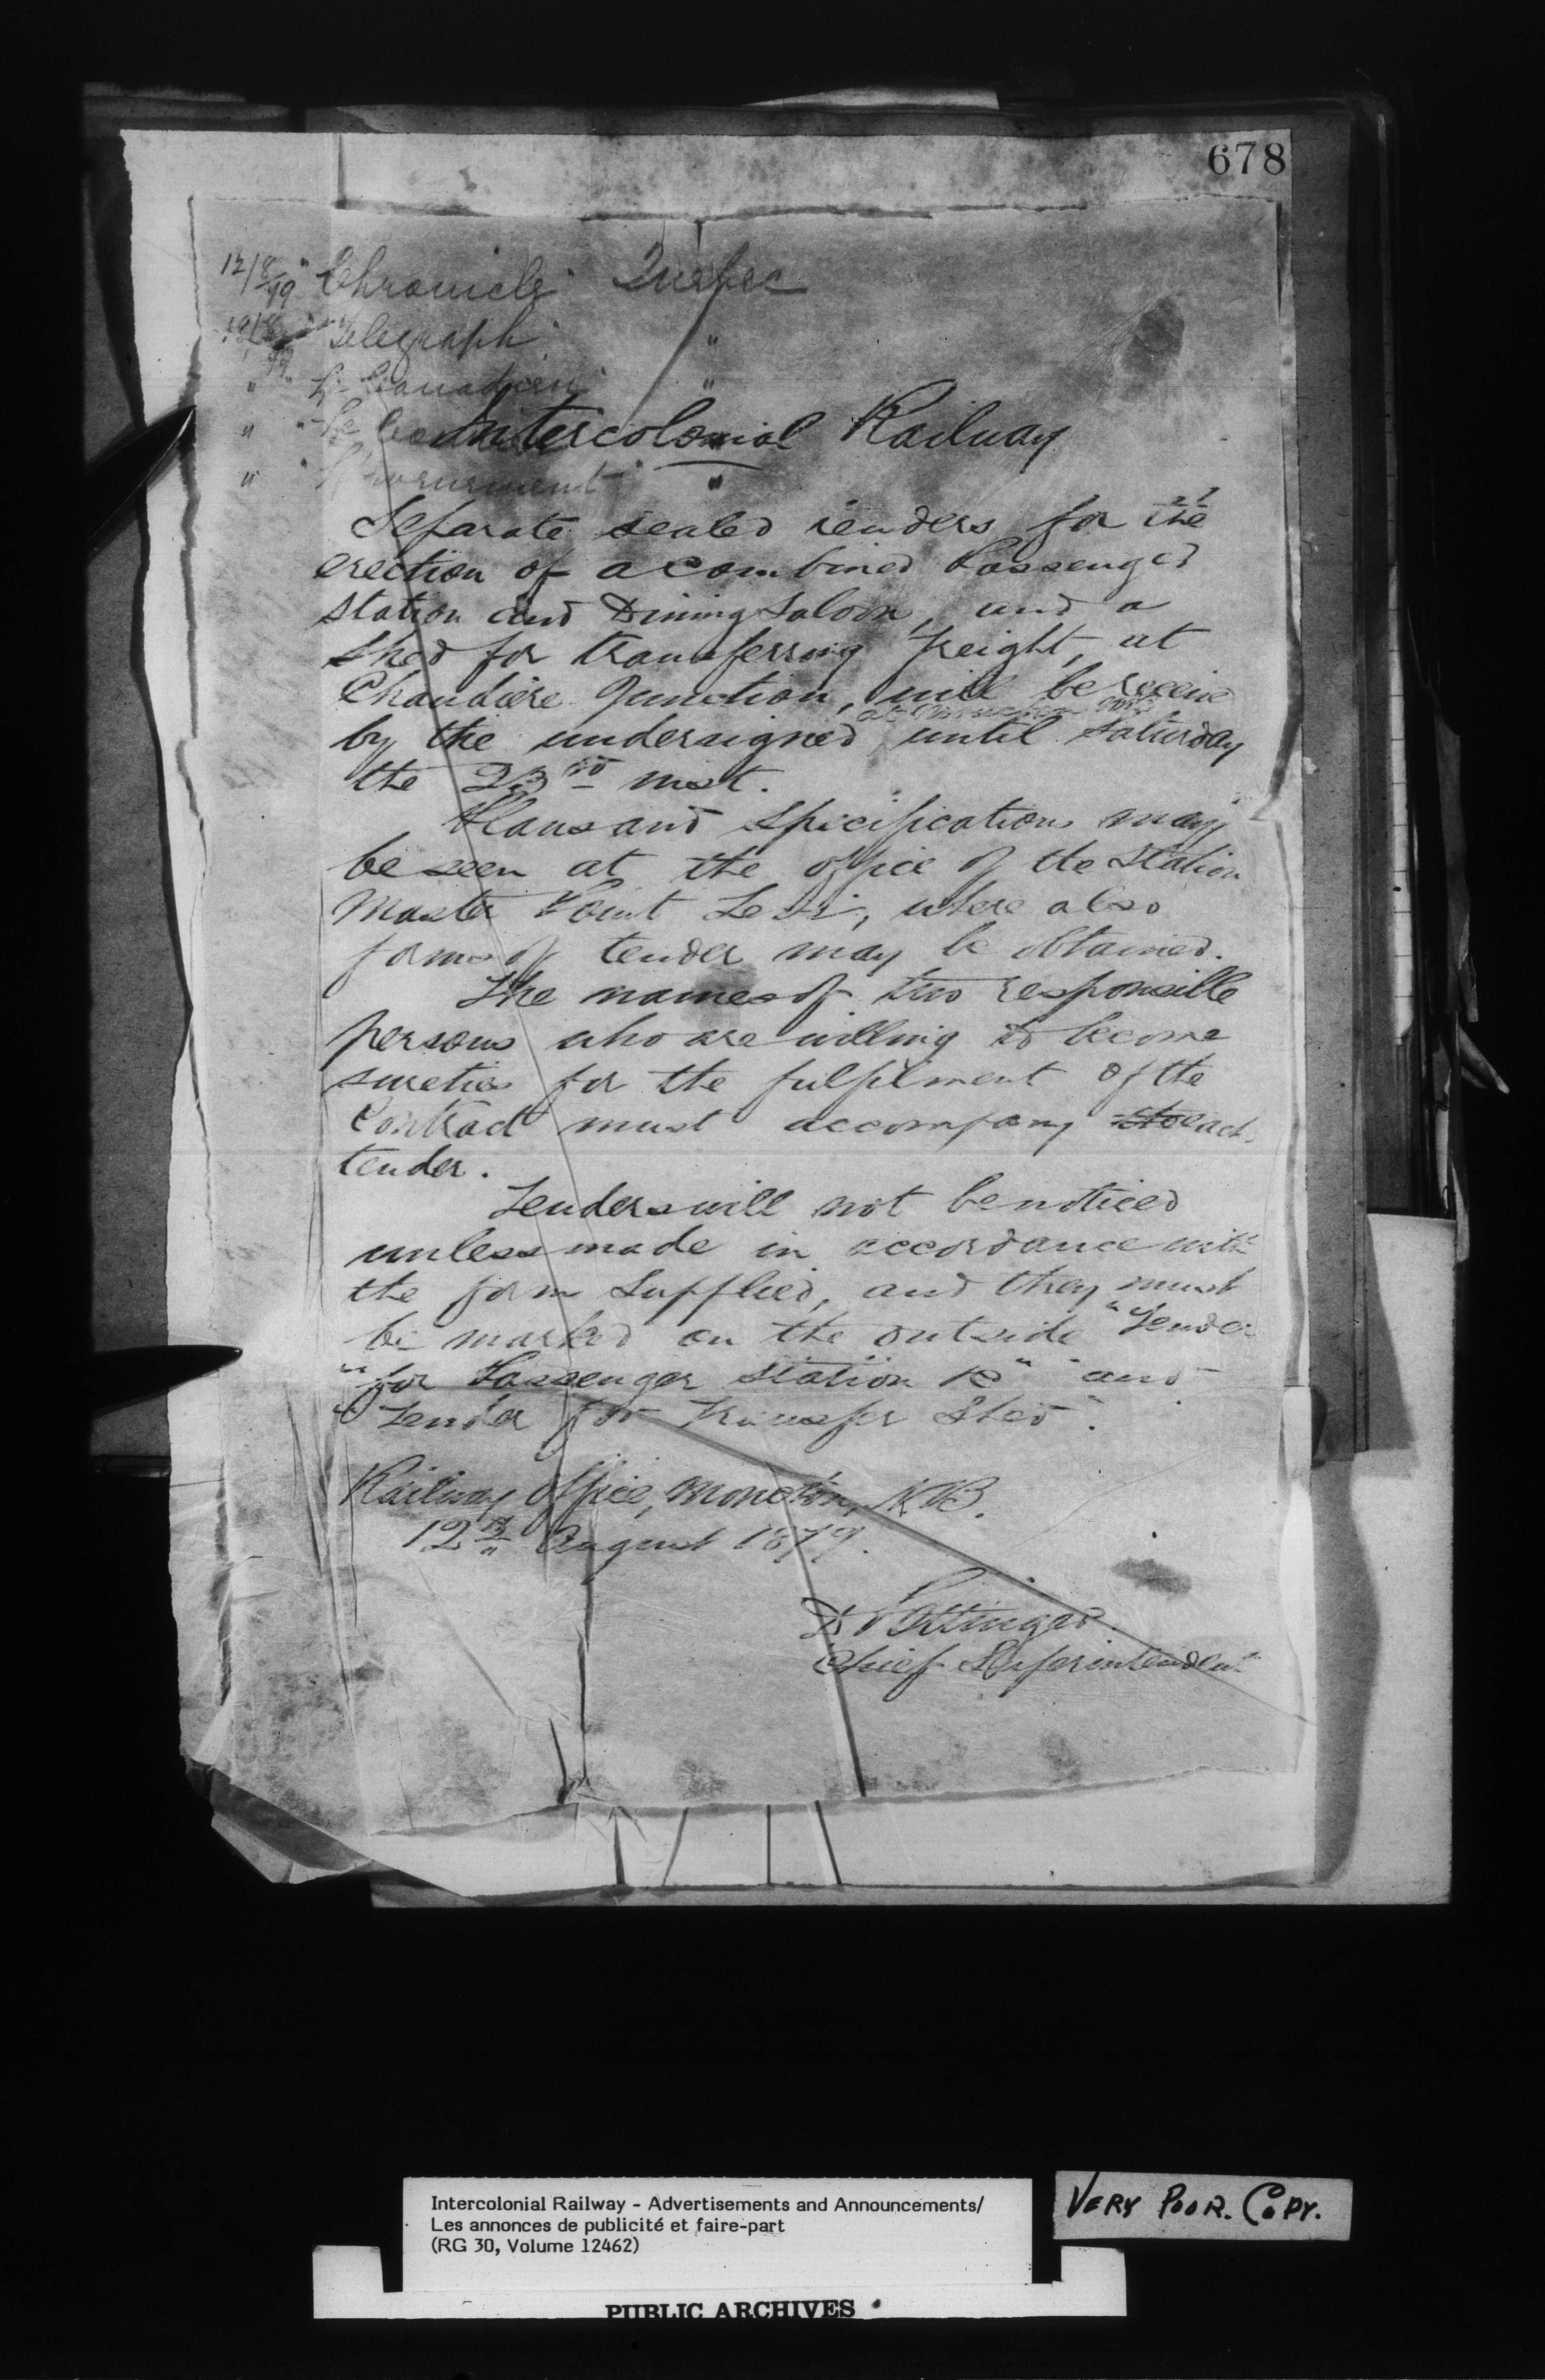 678
12/8/79 "Chronicle" Quebec
"Telegraph" "
" "Le Canadien" "
" "Le
Intercolonial Railway
" "
Separate sealed tenders for the
erection of a combined Passenger
Station and Dining Saloon, and a
Shed for transferring Freight, at
Chaudière Junction, will be receive
at Moncton NB
by the undersigned until Saturday
the 23rd inst.
Plans and Specifications may
be seen at the office of the Station
Master Point Levi, where also
forms of tender may be obtained.
The names of two responsible
persons who are willing to become
sureties for the fulfilment of the
Contract must accompany each
tender.
Tenders will not be noticed
unless made in accordance with
the form supplied, and they must
be marked on the outside "Tender
"for Passenger Station &c" and
"Tender for Transfer Shed".
Railway Office, Moncton, N.B.
12th August 1879.
D Pottinger
Chief Superintendent
Intercolonial Railway - Advertisements and Announcements/
Les annonces de publicité et faire-part
(RG 30, Volume 12462)
VERY POOR. COPY.
PUBLIC ARCHIVES